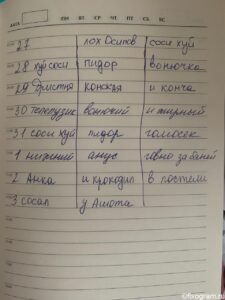 ДАТА ПН ВТ СР ЧТ ПТ СБ ВС
27 лох Осипов соси хуй
28 хуй соси пидор вонючка
29 Дристня конская и конча
30 телепузик вонючий и жирный
31 соси хуй пидор гомосек
1 нижний анус говно за баней
2 Анка и крокодил в постели
3 сосал у Ашота
©fixogram.ru